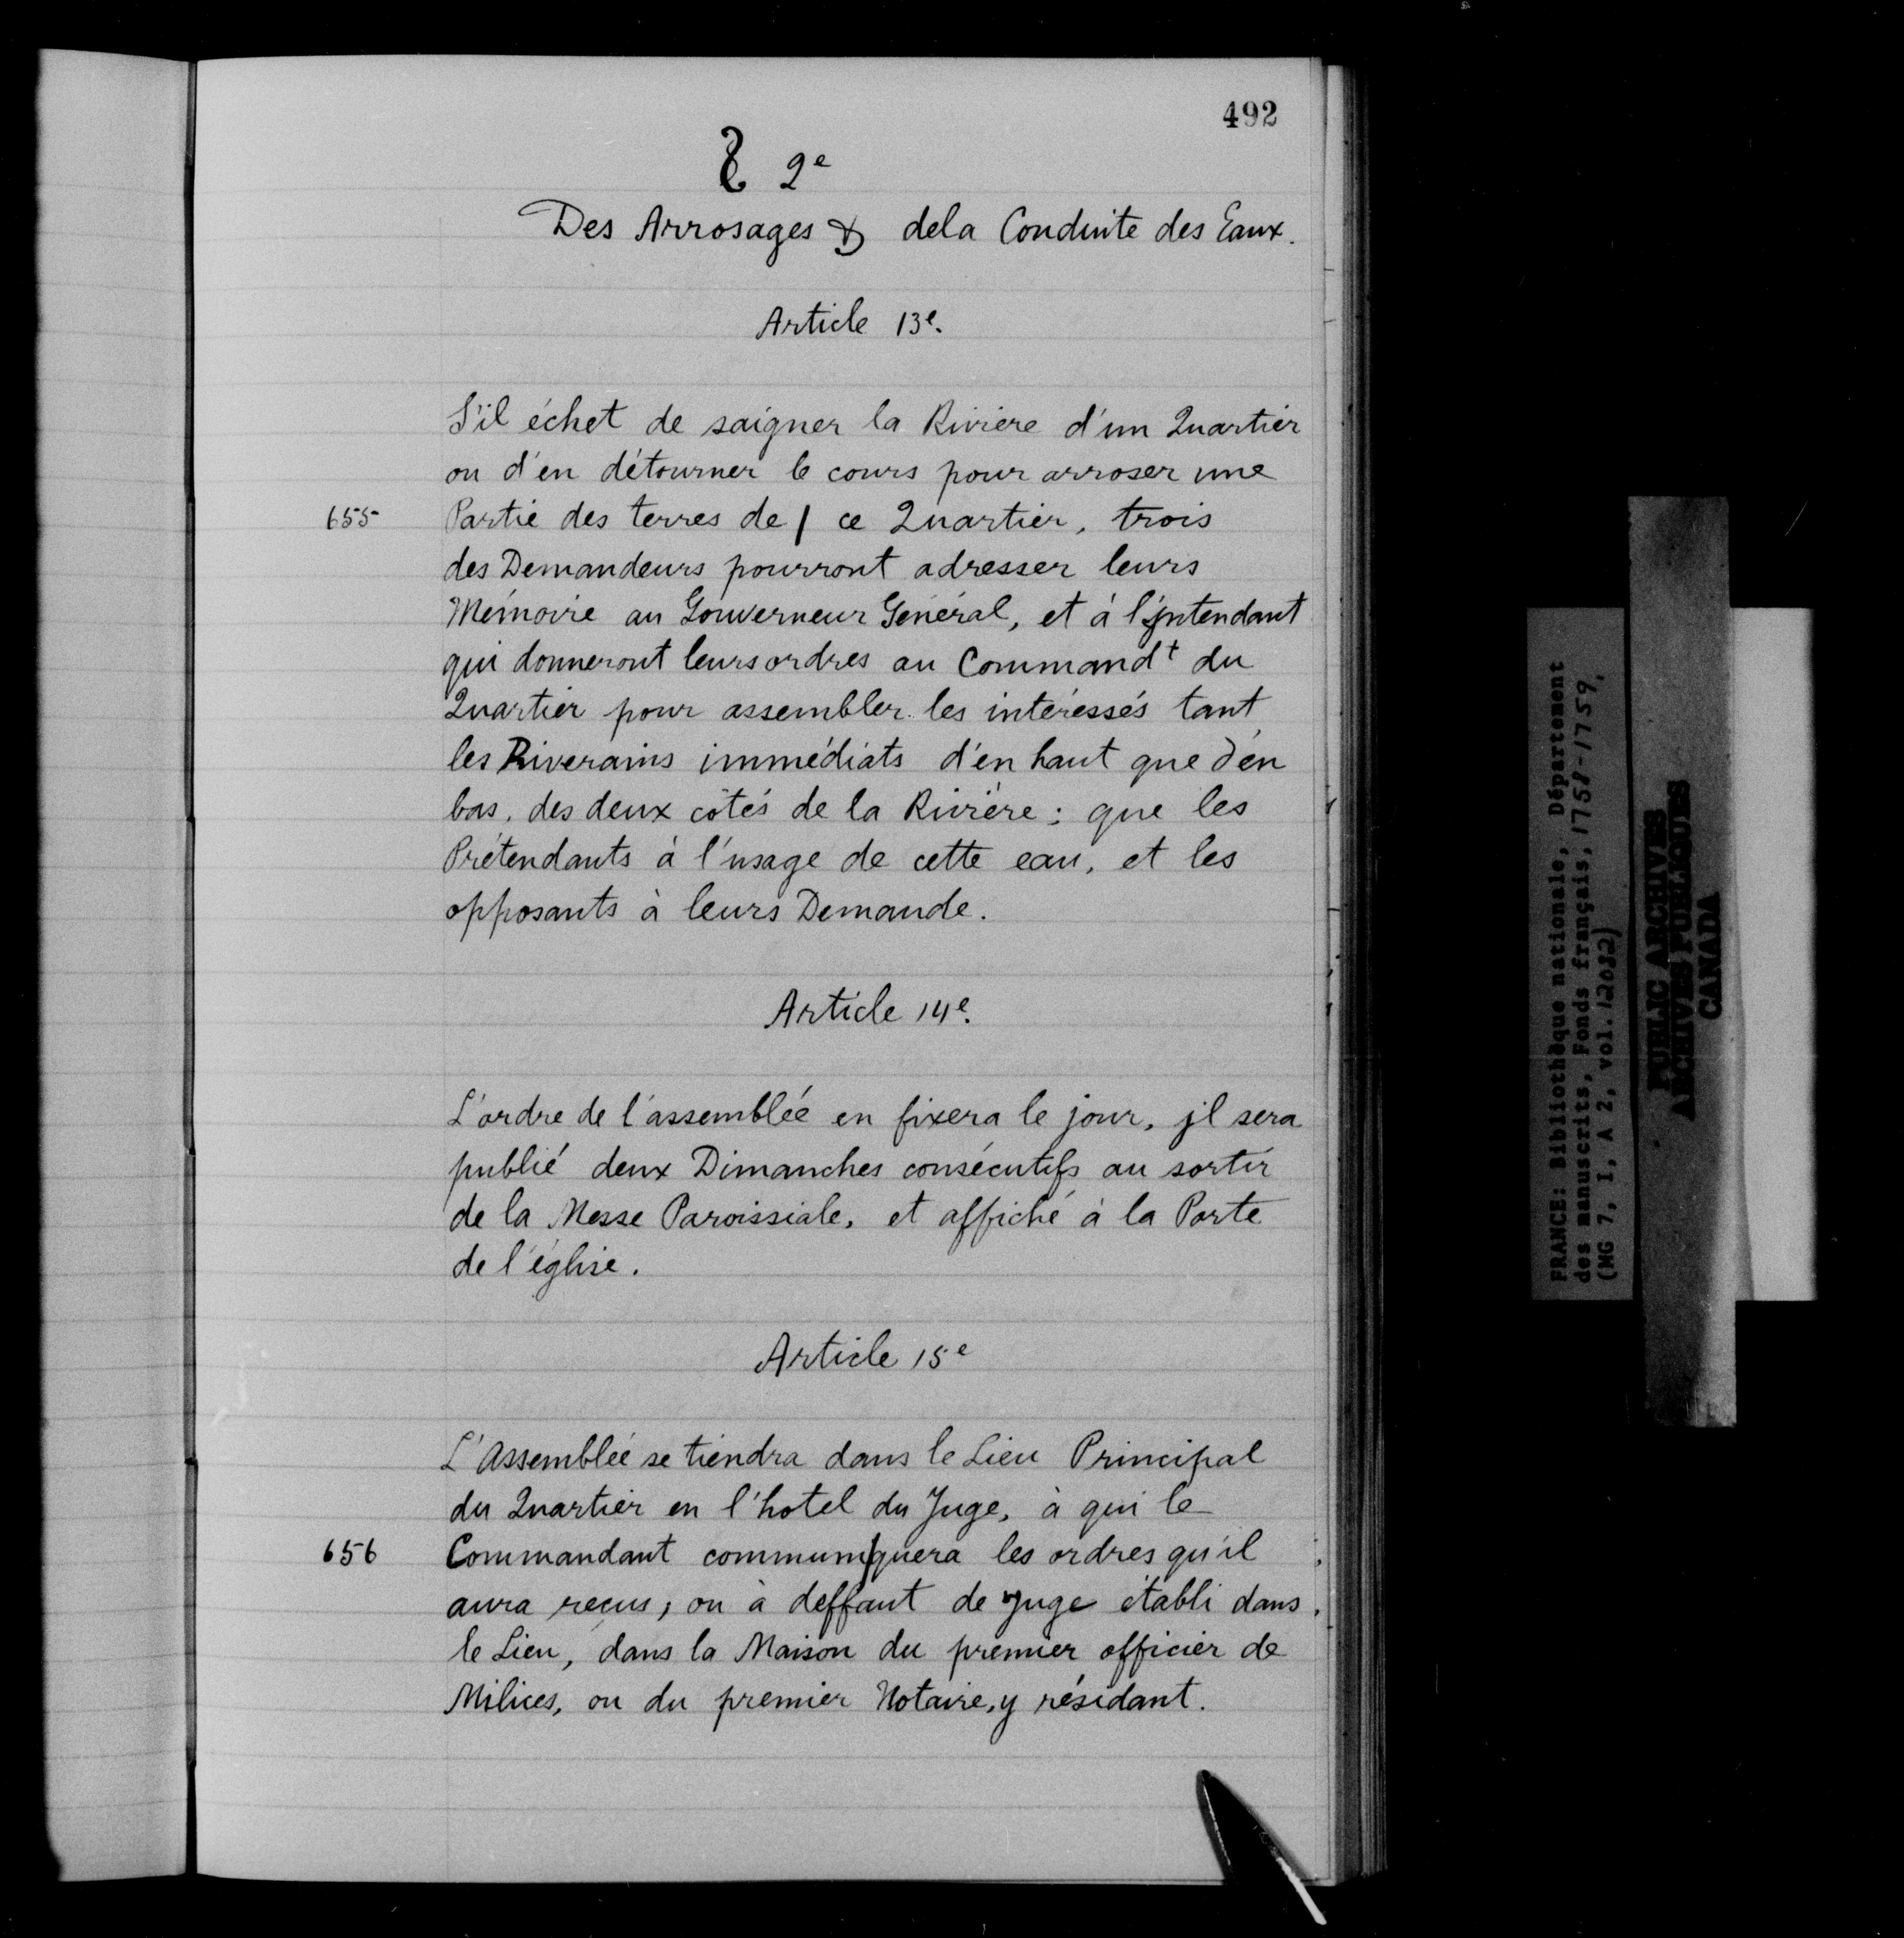 492
§ 2e
Des Arrosages & dela Conduite des Eaux.
Article 13e.
S'il échet de saigner la Rivière d'un Quartier
ou d'en détourner le cours pour arroser une
655 Partie des terres de | ce Quartier, trois
des Demandeurs pourront adresser leurs
Mémoire au Gouverneur Général, et à l'jntendant
qui donneront leurs ordres au Commandt du
Quartier pour assembler les intéressés tant
les Riverains immédiats d'en haut que d'en
bas, des deux côtés de la Rivière : que les
Prétendants à l'usage de cette eau, et les
opposants à leurs Demande.
Article 14e.
L'ordre de l'assemblée en fixera le jour, jl sera
publié deux Dimanches consécutifs au sortir
de la Messe Paroissiale, et affiché à la Porte
de l'église.
Article 15e
L'Assemblée se tiendra dans le Lieu Principal
du Quartier en l'hotel du Juge, à qui le
656 Commandant communi|quera les ordres qu'il
aura reçus, ou à deffaut de Juge établi dans
le Lieu, dans la Maison du premier officier de
Milices, ou du premier Notaire, y résidant.
FRANCE: Bibliothèque nationale, Département
des manuscrits, Fonds français, 1758-1759,
(MG 7, I, A 2, vol. 12082)
PUBLIC ARCHIVES
ARCHIVES PUBLIQUES
CANADA